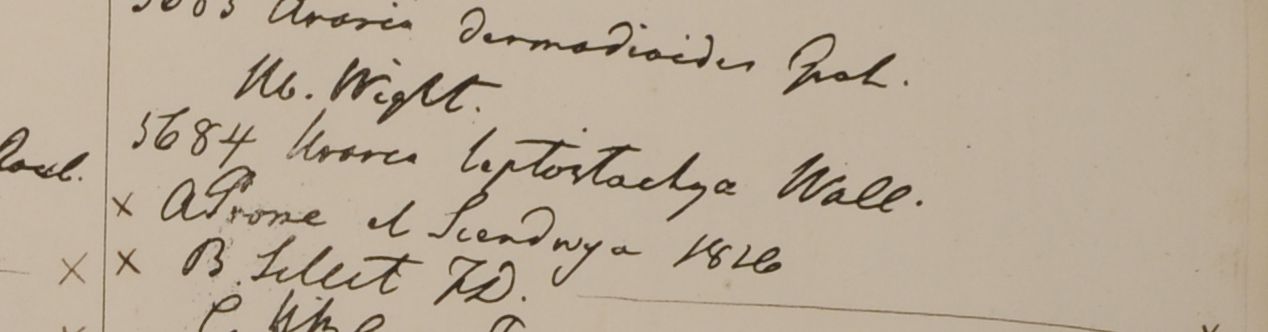 5683 Uraria desmodioides Grah.
Hb. Wight.
5684 Uraria leptostachya Wall.
× A Prome et Seendwya 1826
× × B Sillet FD.